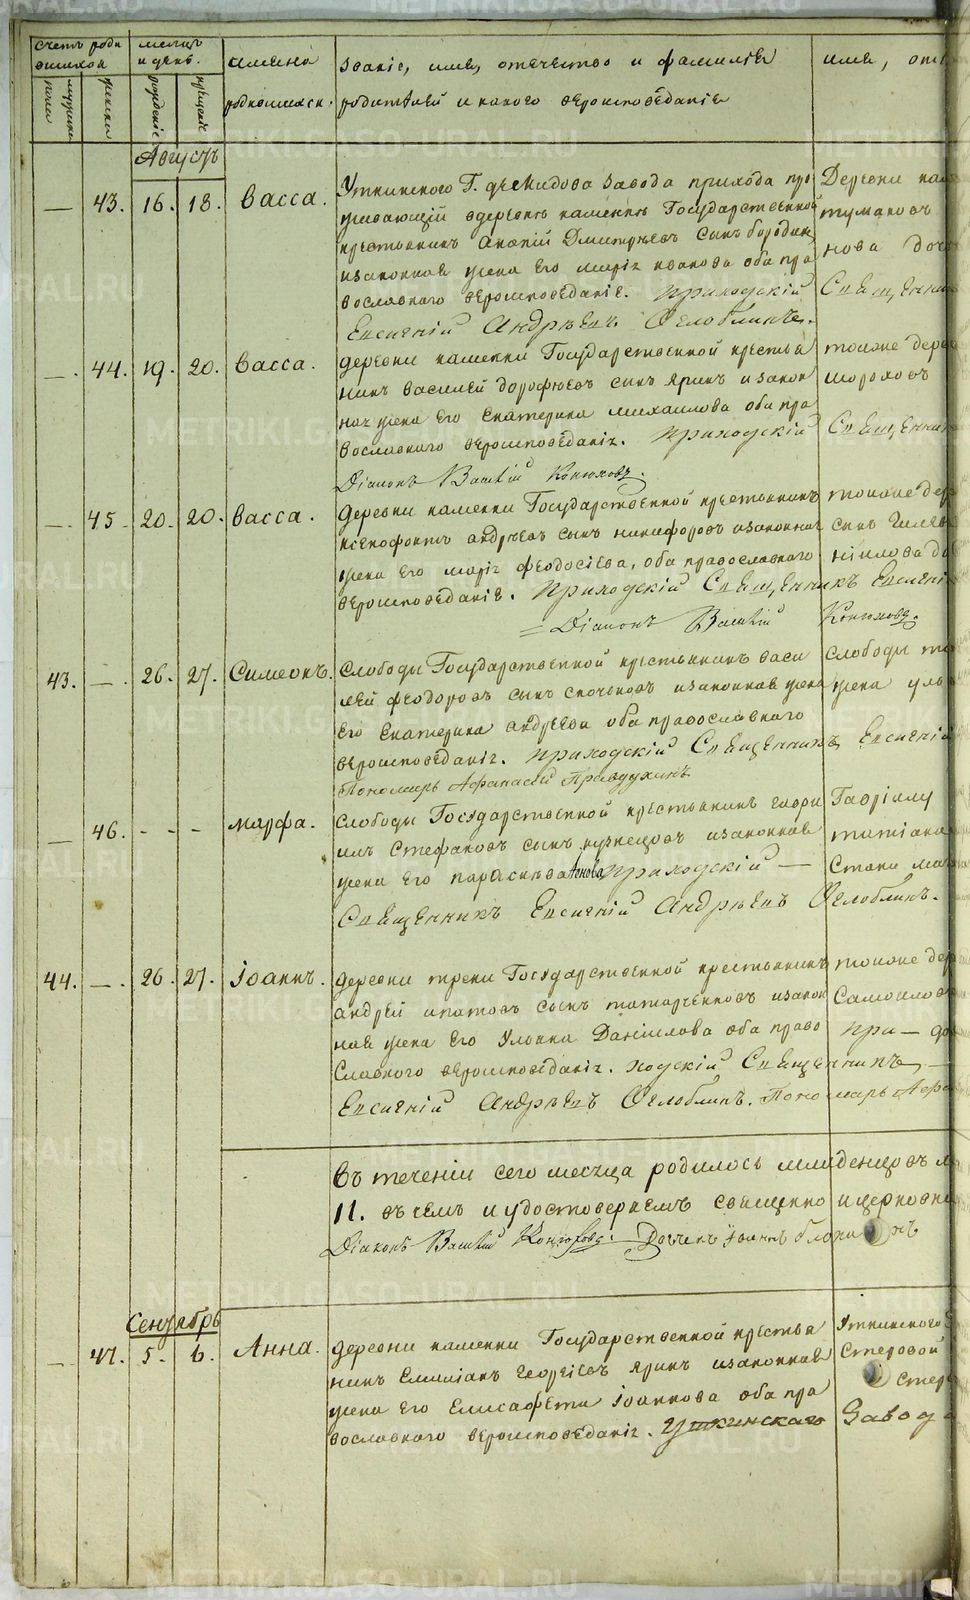 Счетъ роди
вшихся
мужеска пола
женска
месяцъ
и день.
рожденіе
крещеніе
имена
родившихся.
званіе, имя, отечество и фамиліѧ
родителей и какого вероисповѣданіѧ
имя, оте
Августъ
— 43. 16. 18. Васса.
Уткинского Г. Демидова завода прихода про
живающій вдеревнѣ каменкѣ Государственной
крестьянинъ Дмитріевъ сынъ Бородин
изаконная жена Его маріѧ иванова оба пра
вославного вероисповѣданіѧ. Приходскій
Евсигній Андрѣевъ Оглоблинъ.
Деревни кам
тумаковъ
нова доч
Священни
— 44. 19. 20. Васса.
Деревни каменки Государственной крестья
нинъ Василей Дорофѣевъ сынъ Яринъ изакон
наѧ жена Его Екатерина михаилова оба пра
вославного вероисповѣданіѧ. Приходскій
Діаконъ Василій Конюховъ.
тоиже дере
шороховъ
Священник
— 45. 20. 20. Васса.
Деревни каменки Государственной крестьянинъ
ксенофонтъ андрѣевъ сынъ никифоровъ изаконнаѧ
жена Его маріѧ феодосіева, оба православного
вероисповѣданіѧ. Приходскій Священникъ Евсигні
Діаконъ Василій Конюховъ.
тоиже дер
сынъ Гилев
нілова до
43. — 26. 27. Симеонъ.
Слободы Государственной крестьянинъ васи
лей феодоровъ сынъ изаконнаѧ жена
Его Екатерина андрѣева оба православного
вероисповѣданіѧ. Приходскій Священникъ Евсигній
Пономарь Афанасій Правдухинъ
слободы то
жена уль
— 46. - - - марфа.
Слободы Государственной крестьянинъ гаври
илъ Стефановъ сынъ кузнецовъ изаконнаѧ
жена Его параскева Приходскій —
Священникъ Евсигній Андрѣевъ Оглоблинъ.
Гавріилу
татіана
Стани ма
44. — 26. 27. Іоаннъ.
Деревни треки Государственной крестьянинъ
андрей ипатовъ сынъ татарченковъ изакон
наѧ жена Его Улонна Даніилова оба право
славного вероисповѣданіѧ. ходскій Священникъ —
Евсигній Андрѣевъ Оглоблинъ. Пономарь Афа
тоиже дер
Самоилов
При —
Въ теченіи сего месяца родилось младенцовъ
11. въ чемъ и удостоверяемъ священно и церковно
Діаконъ Василій Конюховъ. Іоаннъ
Сентябрь
— 47. 5. 6. Анна.
Деревни каменки Государственной крестья
нинъ Емиліанъ Георгіевъ Яринъ изаконнаѧ
жена Его Елисафета Іоаннова оба пра
вославного вероисповѣданіѧ. Уткинскаго Завода
Уткинского
Стеровой
METRIKI.GASO-URAL.RU